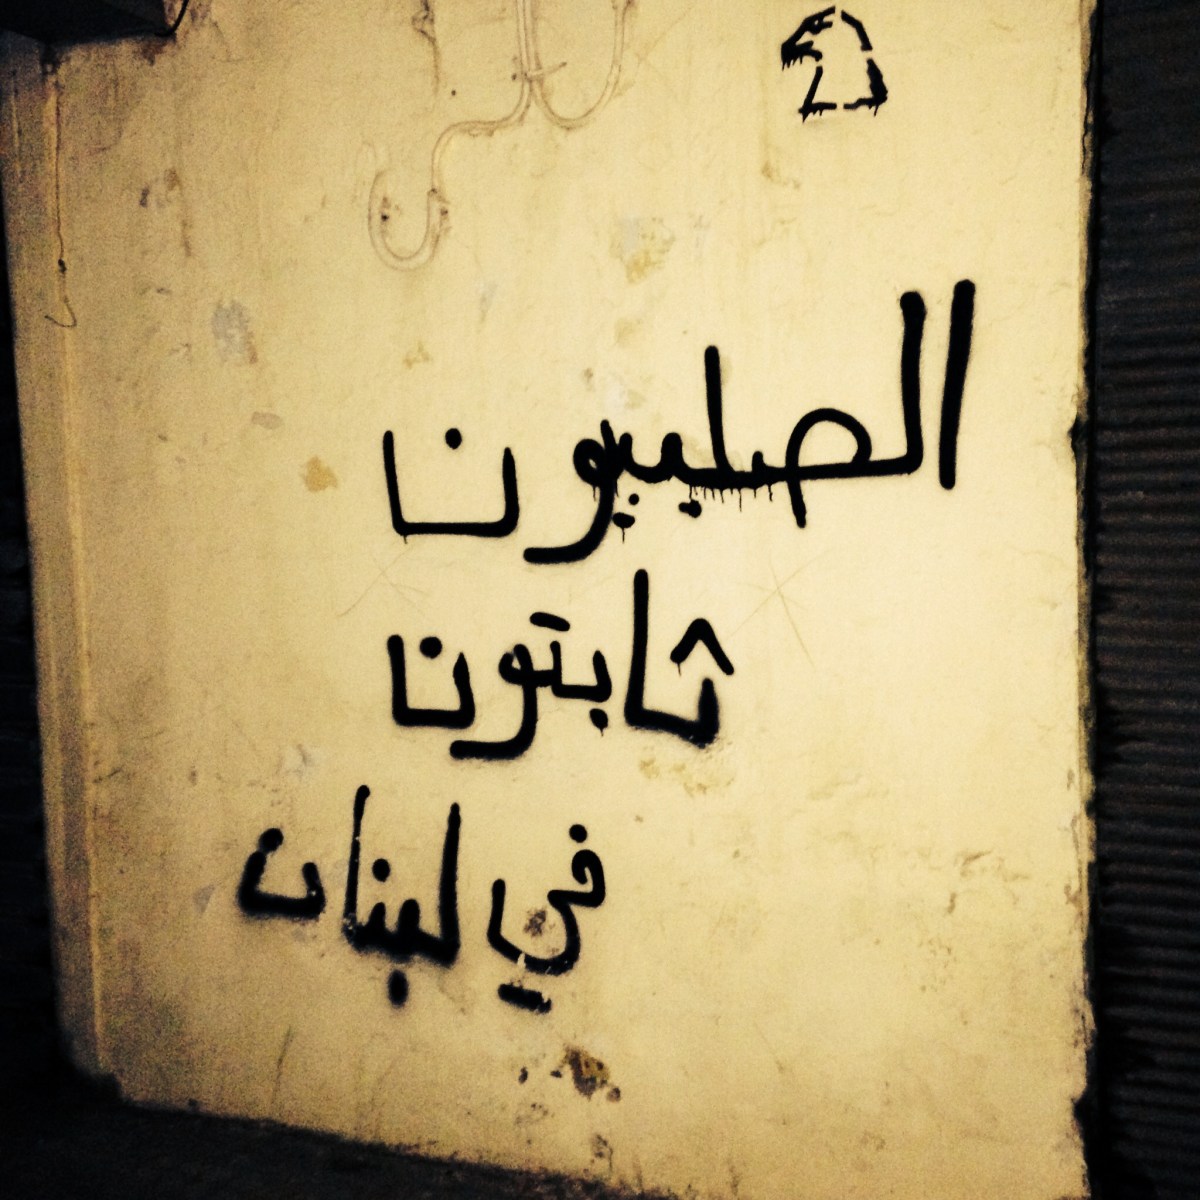 الصليبيون
ثابتون
في لبنان